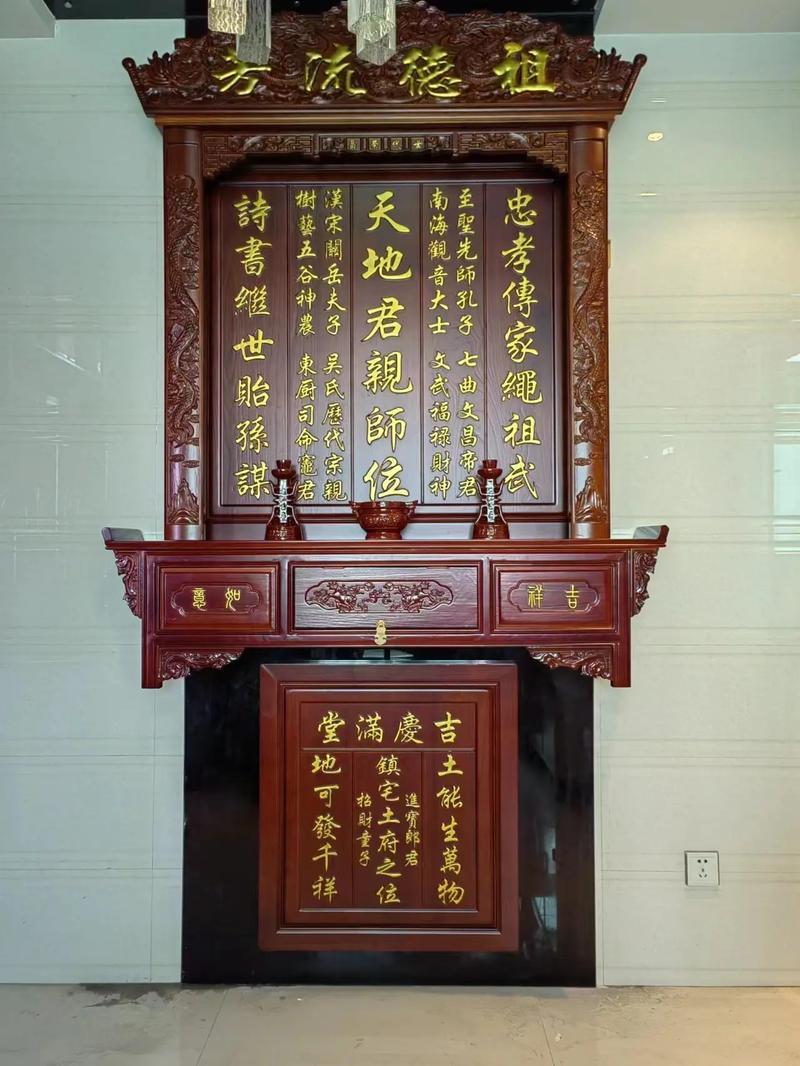 祖德流芳
忠孝傳家繩祖武
至聖先師孔子 七曲文昌帝君
南海觀音大士 文武福禄財神
天地君親師位
漢宋關岳夫子 吳氏歷代宗親
樹藝五谷神農 東厨司命竈君
詩書繼世貽孫謀
吉祥
如意
吉慶滿堂
土能生萬物
進寳郎君
鎮宅土府之位
招財童子
地可發千祥